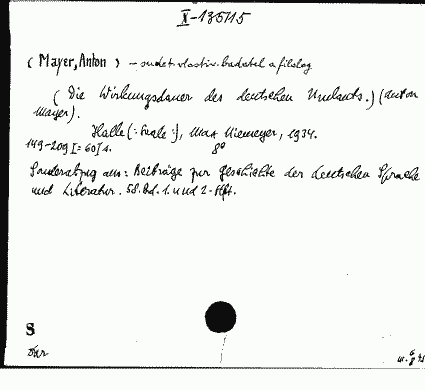 II-135115
(Mayer, Anton) - sudet. vlastiv. badatel a filolog
(Die Wirkungsdauer des deutschen Umlauts.) (Anton
Mayer).
Halle (: Saale :), Max Niemeyer, 1934.
149-209 [= 60] s. 8°
Sonderabzug aus: Beiträge zur Geschichte der deutschen Sprache
und Literatur. 58. Bd. 1. und 2. Hft.
S
Dar